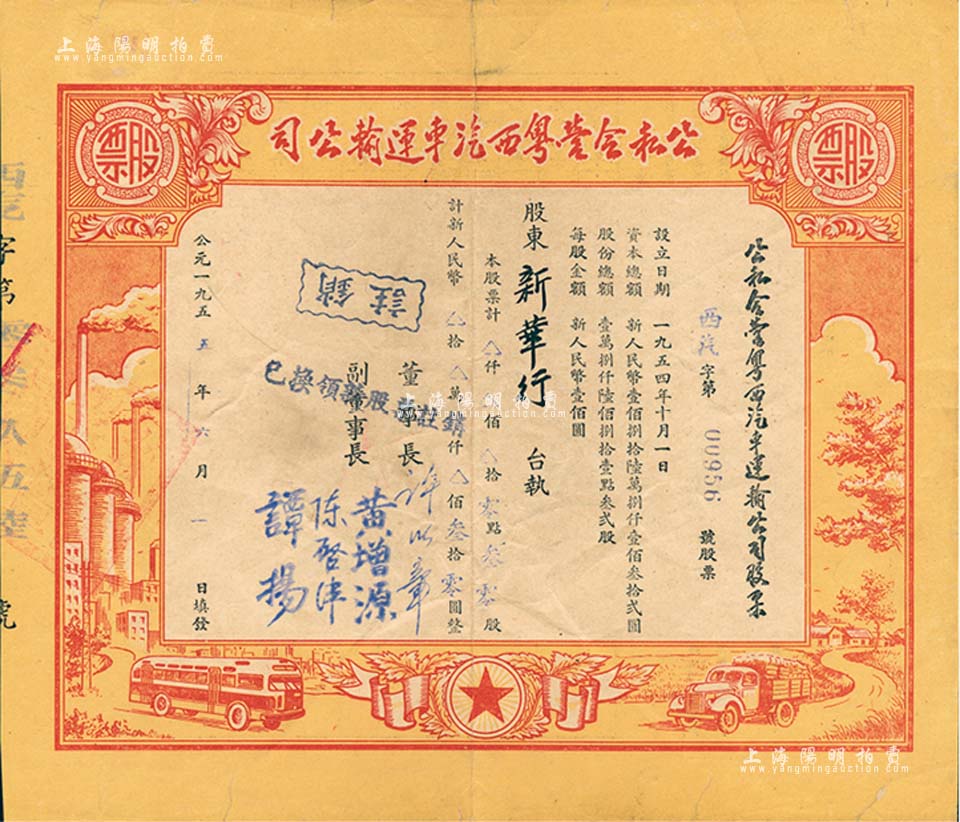 上海陽明拍賣
www.yangmingauction.com
股票
股票
公私合營粤西汽車運輸公司
公私合營粤西汽車運輸公司股票
西汽字第 00956 號股票
設立日期 一九五四年十月一日
資本總額 新人民幣壹佰捌拾陸萬捌仟壹佰叁拾弍圓
股份總額 壹萬捌仟陸佰捌拾壹點叁弍股
每股金額 新人民幣壹佰圓
股東 新華行 台執
本股票計 △仟△佰△拾零點叁零股
計新人民幣 △拾△萬△仟△佰叁拾零圓整
董事長 許以章
副董事長 黄增源
陈啓津
譚揚
註銷
已換領新股票註銷
公元一九五五年六月一日填發
西汽字第 玖五陸 號
上海陽明拍賣
www.yangmingauction.com
上海陽明拍賣
www.yangmingauction.com